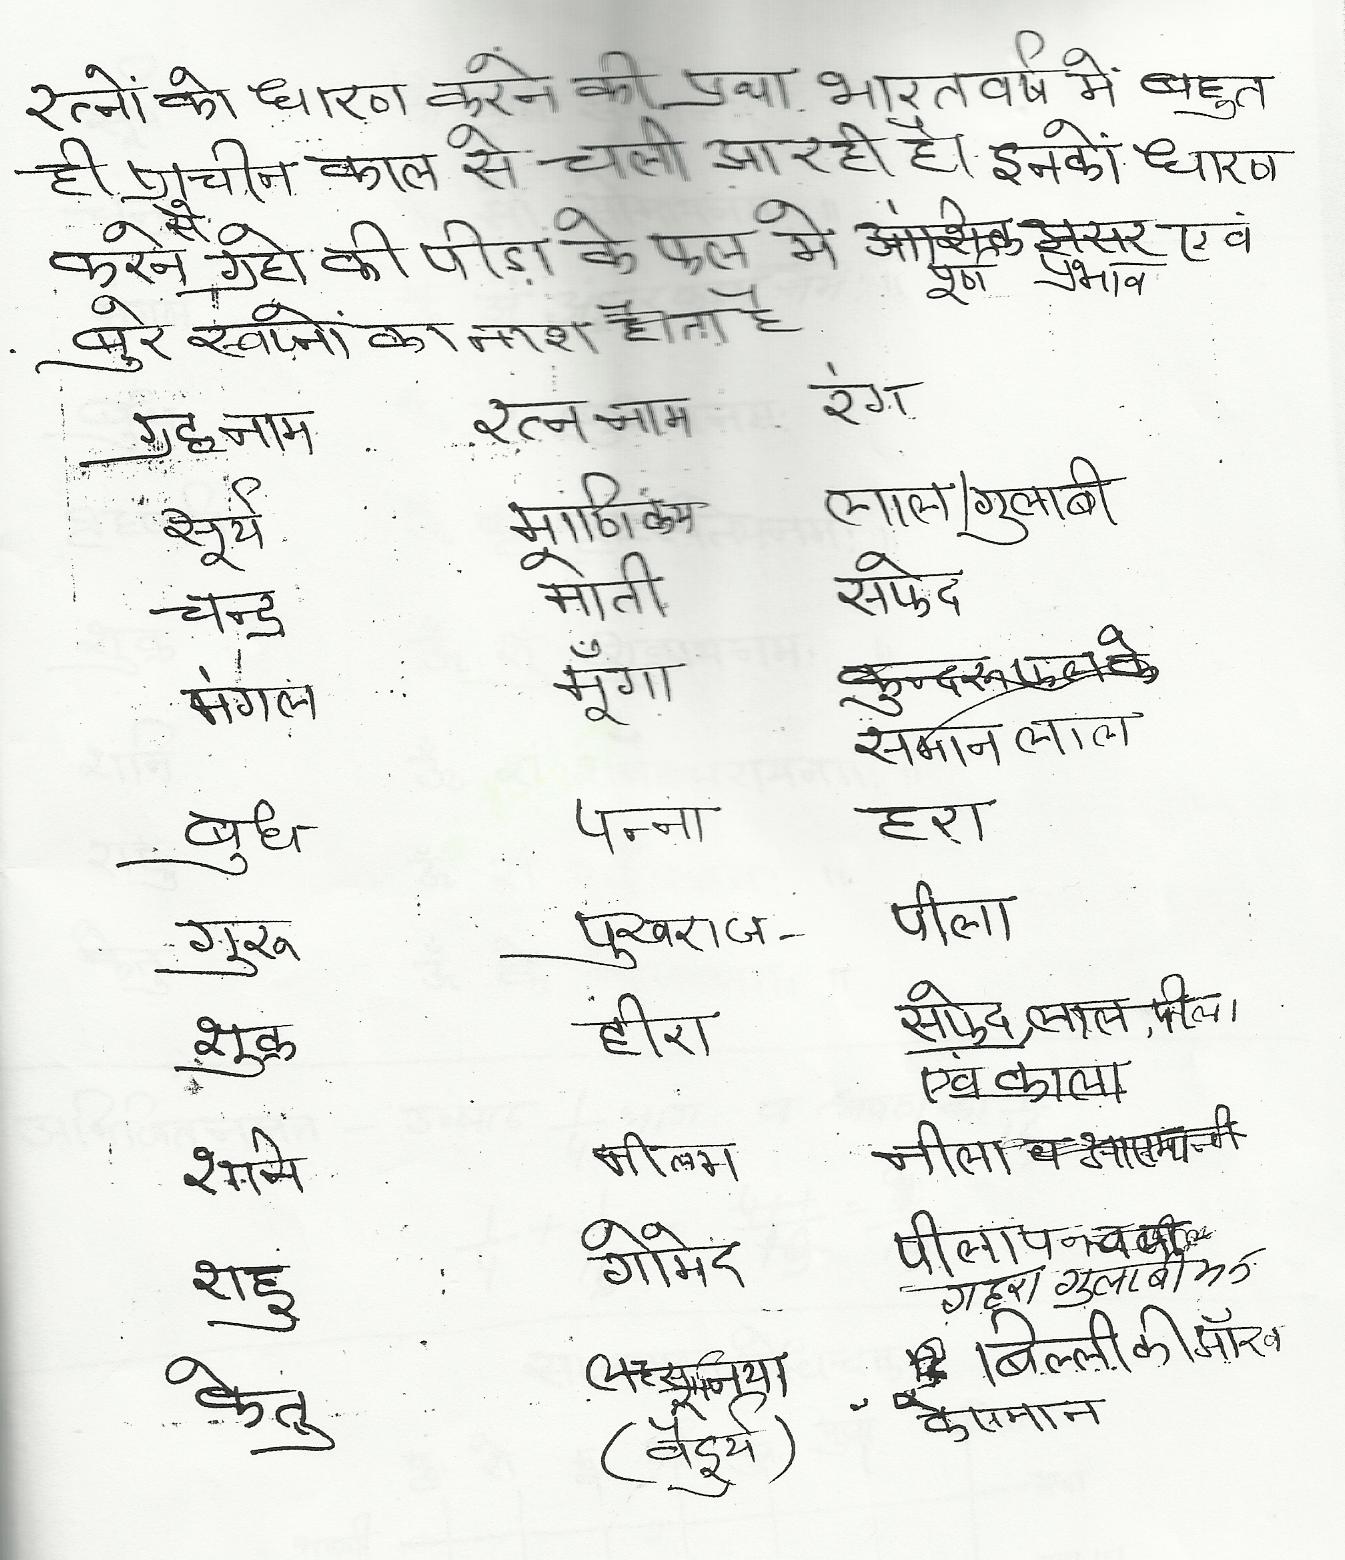 रत्नों को धारण करने की प्रथा भारतवर्ष में बहुत
ही प्राचीन काल से चली आ रही है। इनको धारण
करने से ग्रहो की पीड़ा के फल मे आंशिक असर एवं
पूर्ण प्रभाव
बुरे स्वप्नों का नाश होता है
ग्रह नाम रत्न नाम रंग
सूर्य माणिक्य लाल/गुलाबी
चन्द्र मोती सफेद
मंगल मूँगा कुन्दरू फल के
समान लाल
बुध पन्ना हरा
गुरू पुखराज - पीला
शुक्र हीरा सफेद, लाल, पीला
एवं काला
शनि नीलम नीला व आसमानी
राहु गोमेद पीलापन
गहरा गुलाबी
केतु लहसुनिया बिल्ली की आँख
(वैडूर्य) के समान